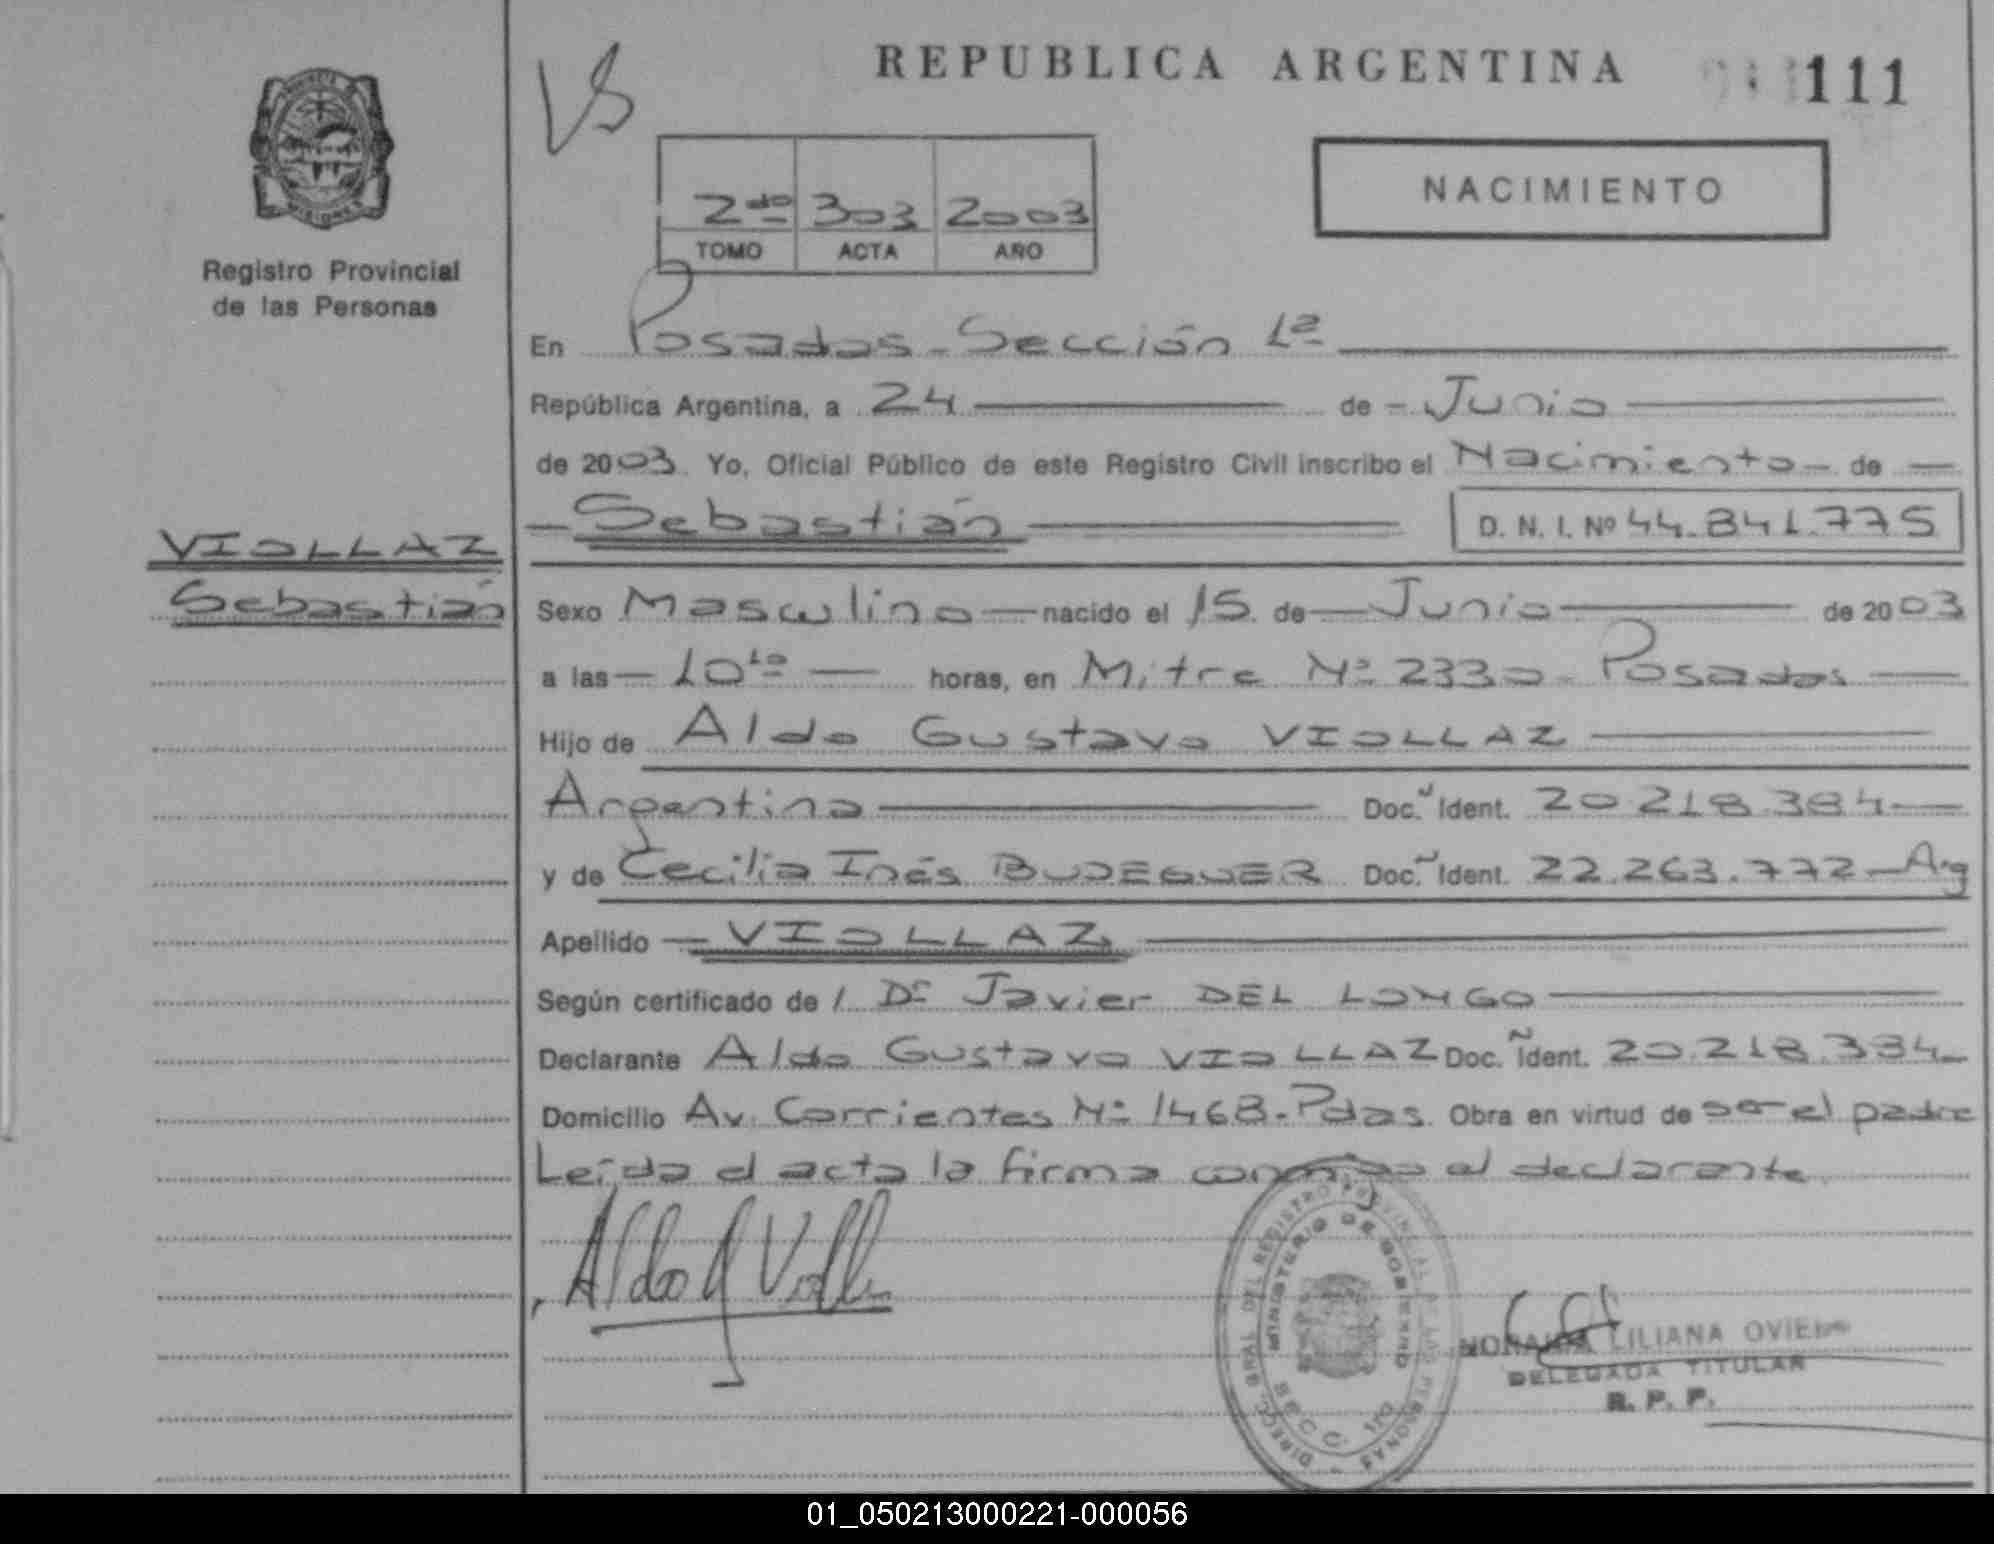 REPUBLICA ARGENTINA
111
VS
NACIMIENTO
2do 303 2003
TOMO ACTA AÑO
PROVINCIA
MISIONES
Registro Provincial
de las Personas
VIOLLAZ
Sebastián
En Posadas - Sección 1ª
República Argentina, a 24 de - Junio
de 2003. Yo, Oficial Público de este Registro Civil inscribo el Nacimiento - de
Sebastián
D. N. I. Nº 44.841.775
Sexo Masculino nacido el 15 de Junio de 2003
a las 10 10 horas, en Mitre Nº 2330 - Posadas
Hijo de Aldo Gustavo VIOLLAZ
Argentino Doc. Ident. 20.218.384
y de Cecilia Inés BUDEGUER Doc. Ident. 22.263.772 - Arg
Apellido VIOLLAZ
Según certificado de / Dr Javier DEL LONGO
Declarante Aldo Gustavo VIOLLAZ Doc. Ident. 20.218.384
Domicilio Av. Corrientes Nº 1468 - Pdas. Obra en virtud de ser el padre
Leída el acta la firma conmigo el declarante.
Aldo G Violla
DIRECC. GRAL DEL REGISTRO PROVINCIAL DE LAS PERSONAS
MINISTERIO DE GOBIERNO
SECC. 1ra
LILIANA OVIEDO
DELEGADA TITULAR
R. P. P.
01_050213000221-000056